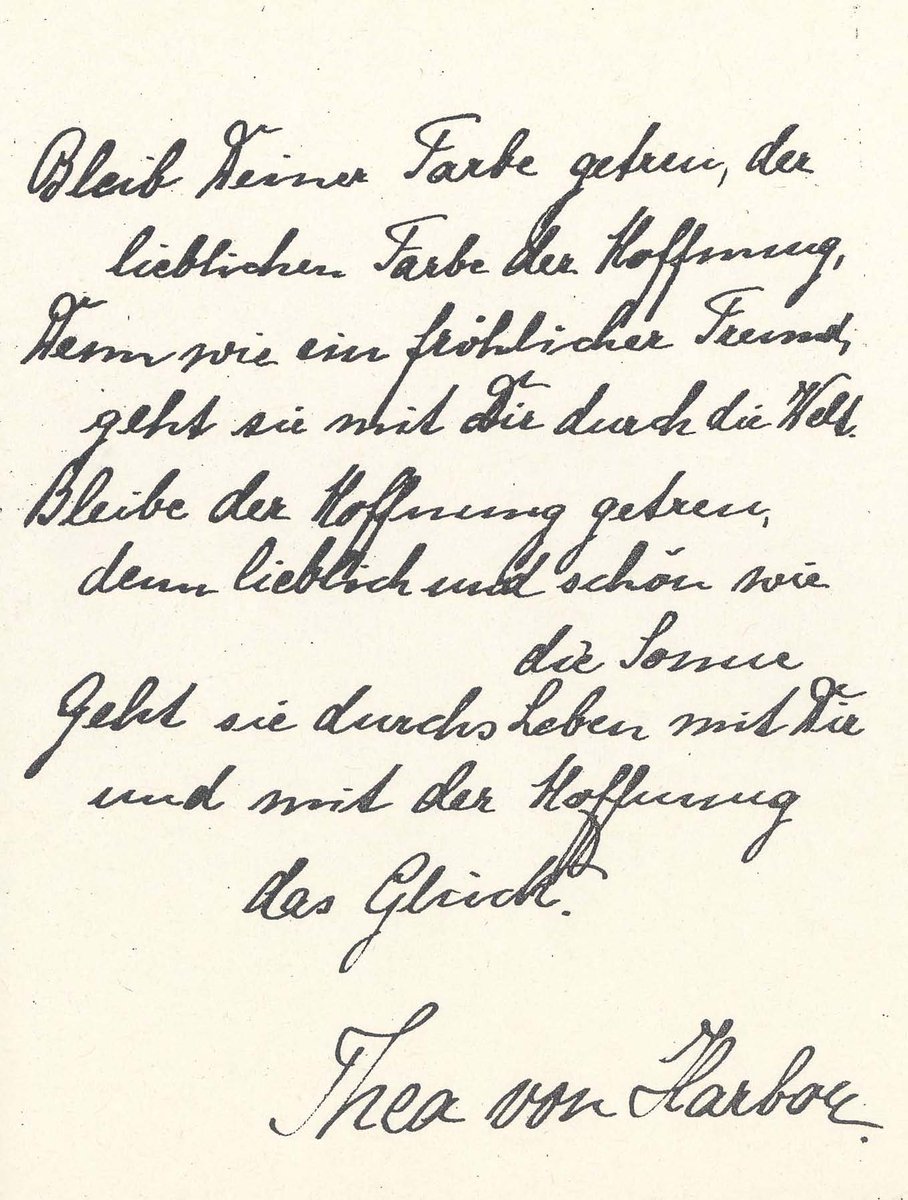 Bleib Deiner Farbe getreu, der
lieblichen Farbe der Hoffnung,
Denn wie ein fröhlicher Freund,
geht sie mit Dir durch die Welt.
Bleibe der Hoffnung getreu,
denn lieblich und schön wie
die Sonne
Geht sie durchs Leben mit Dir
und mit der Hoffnung
das Glück.
Thea von Harbou.